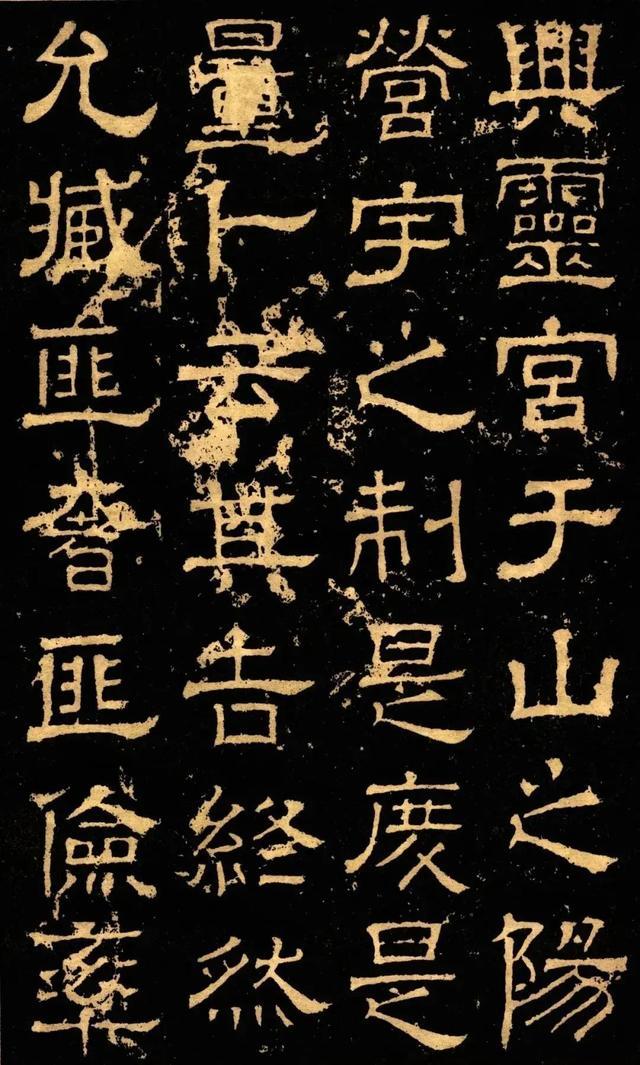 興靈宮于山之陽
營宇之制是度是
量卜云其吉終然
允臧匪奢匪儉率